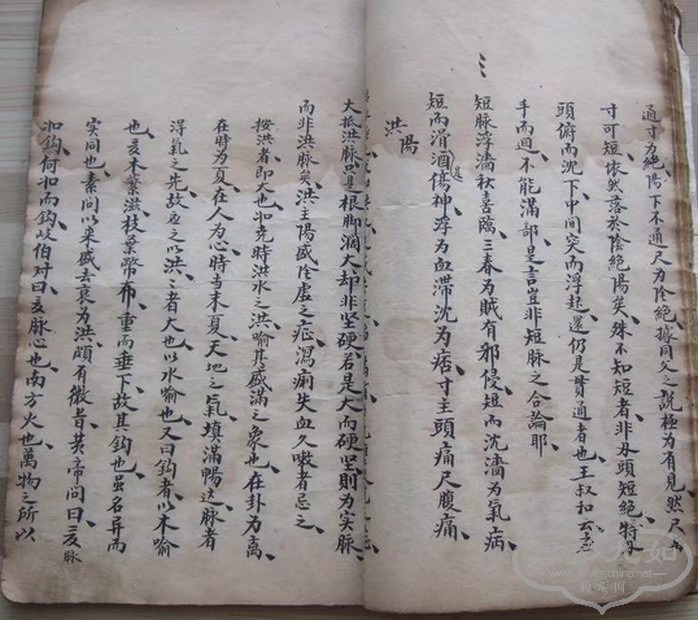 通寸为绝阳下不通尺为阴绝據同父之説極为有見然尺
寸可短依然落於阴絶陽矣殊不知短者非兩頭短絶特
頭俯而沈下中間突而浮起还仍是貫通者也王叔和云
手而廻不能滿部是言豈非短脉之合論耶
短脉浮濇秋喜臨三春为賊有邪侵短而沈濇为氣病
短而滑酒傷神浮为血滞沈为痞寸主頭痛尺腹痛
洪陽
大抵洪脉只是根脚濶大却非坚硬若是大而硬坚則为实脉
而非洪脉矣洪主陽盛阴虚之症瀉痢失血久嗽者忌之
按洪者即大也如尭時洪水之洪喻其盛满之象也在卦为离
在時为夏在人为心時当未夏天地之氣填滿暢达脉者
浮氣之先故应之以洪洪者大也以水喻也又曰鈎者以木喻
也夏木蘩滋枝葉幣布重而垂下故其鈎也虽名异而
实同也素問以来盛去衰为洪頗有微旨黄帝問曰夏脉
如鈎何如而鈎岐伯对曰夏脉心也南方火也萬物之所以
www.silver-china.net
收藏网